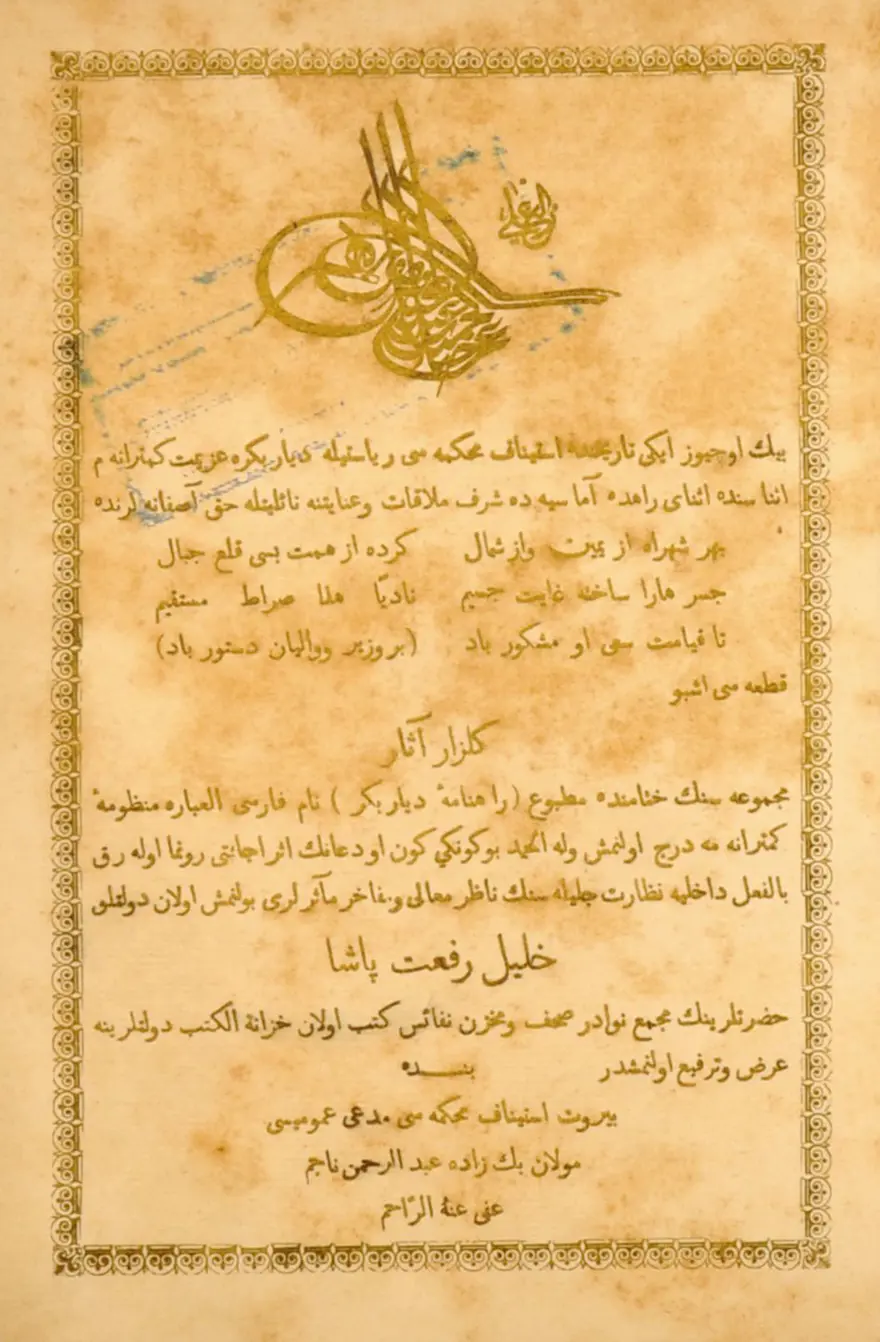 بیك اوچیوز ایكی تاریخنده استیناف محكمه سی ریاستیله دیاربكره عزیمت كمترانه م
اثنا سنده اثنای راهده آماسیه ده شرف ملاقات وعنایتنه نائلیتله حق آصفانه لرنده
بهر شهراه از یمین واز شمال كرده از همت بسی قلع جبال
جسر هارا ساخته غایت جسیم نادیّا هذا صراط مستقیم
تا قیامت سعی او مشكور باد (بر وزیر ووالیان دستور باد)
قطعه سی اشبو
كلزار آثار
مجموعه سنك ختامنده مطبوع (راهنامهٔ دیاربكر) نام فارسی العباره منظومهٔ
كمترانه مه درج اولنمش وله الحمد بوكونكی كون او دعانك اثر اجابتی رونما اوله رق
بالفعل داخلیه نظارت جلیله سنك ناظر معالی ومفاخر مآثر لری بولنمش اولان دولتلو
خلیل رفعت پاشا
حضرتلرینك مجمع نوادر صحف ومخزن نفائس كتب اولان خزانة الكتب دولتلرینه
عرض وترفیع اولنمشدر بنـــده
بیروت استیناف محكمه سی مدعی عمومیسی
مولان بك زاده عبد الرحمن ناجم
عفی عنهُ الرّاحم